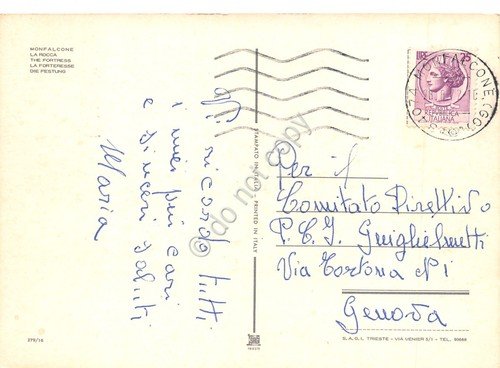 MONFALCONE
LA ROCCA
THE FORTRESS
LA FORTERESSE
DIE FESTUNG
Vi ricordo tutti
i miei più cari
e sinceri saluti
Maria
STAMPATO IN ITALIA - PRINTED IN ITALY
do not copy
MONFALCONE (GO)
REPUBBLICA
ITALIANA
Per il
Comitato Direttivo
P.C.I. Guiglielmetti
Via Tortona N 1
Genova
379/16
S.A.G.I. TRIESTE - VIA VENIER 5/1 - TEL.